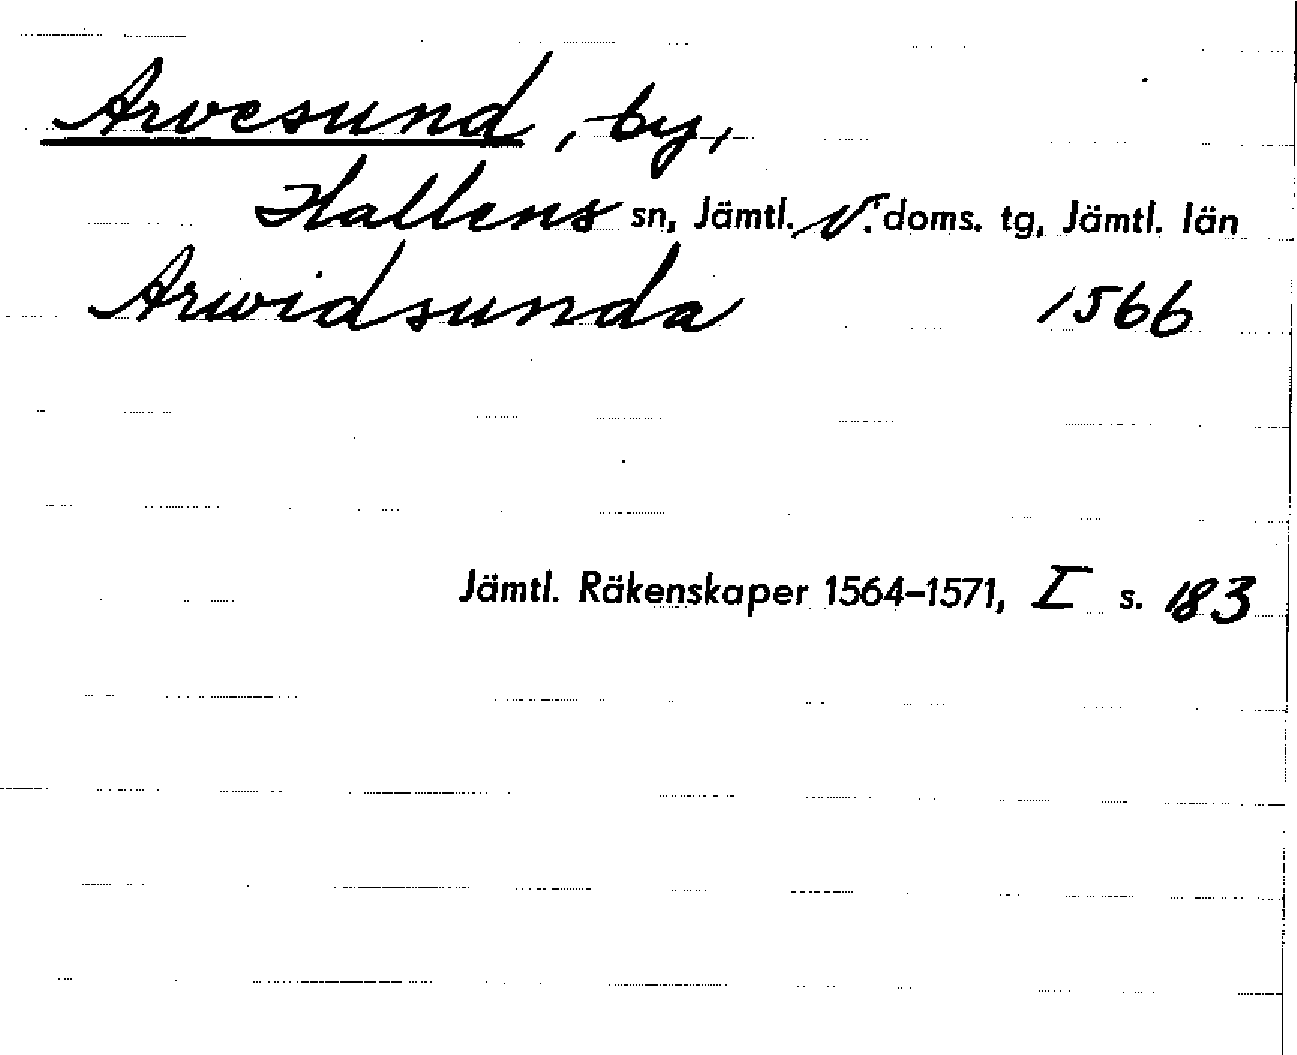 Arvesund, by,
Hallens sn, Jämtl. V. doms. tg, Jämtl. län
Arwidsunda 1566
Jämtl. Räkenskaper 1564-1571, I s. 183